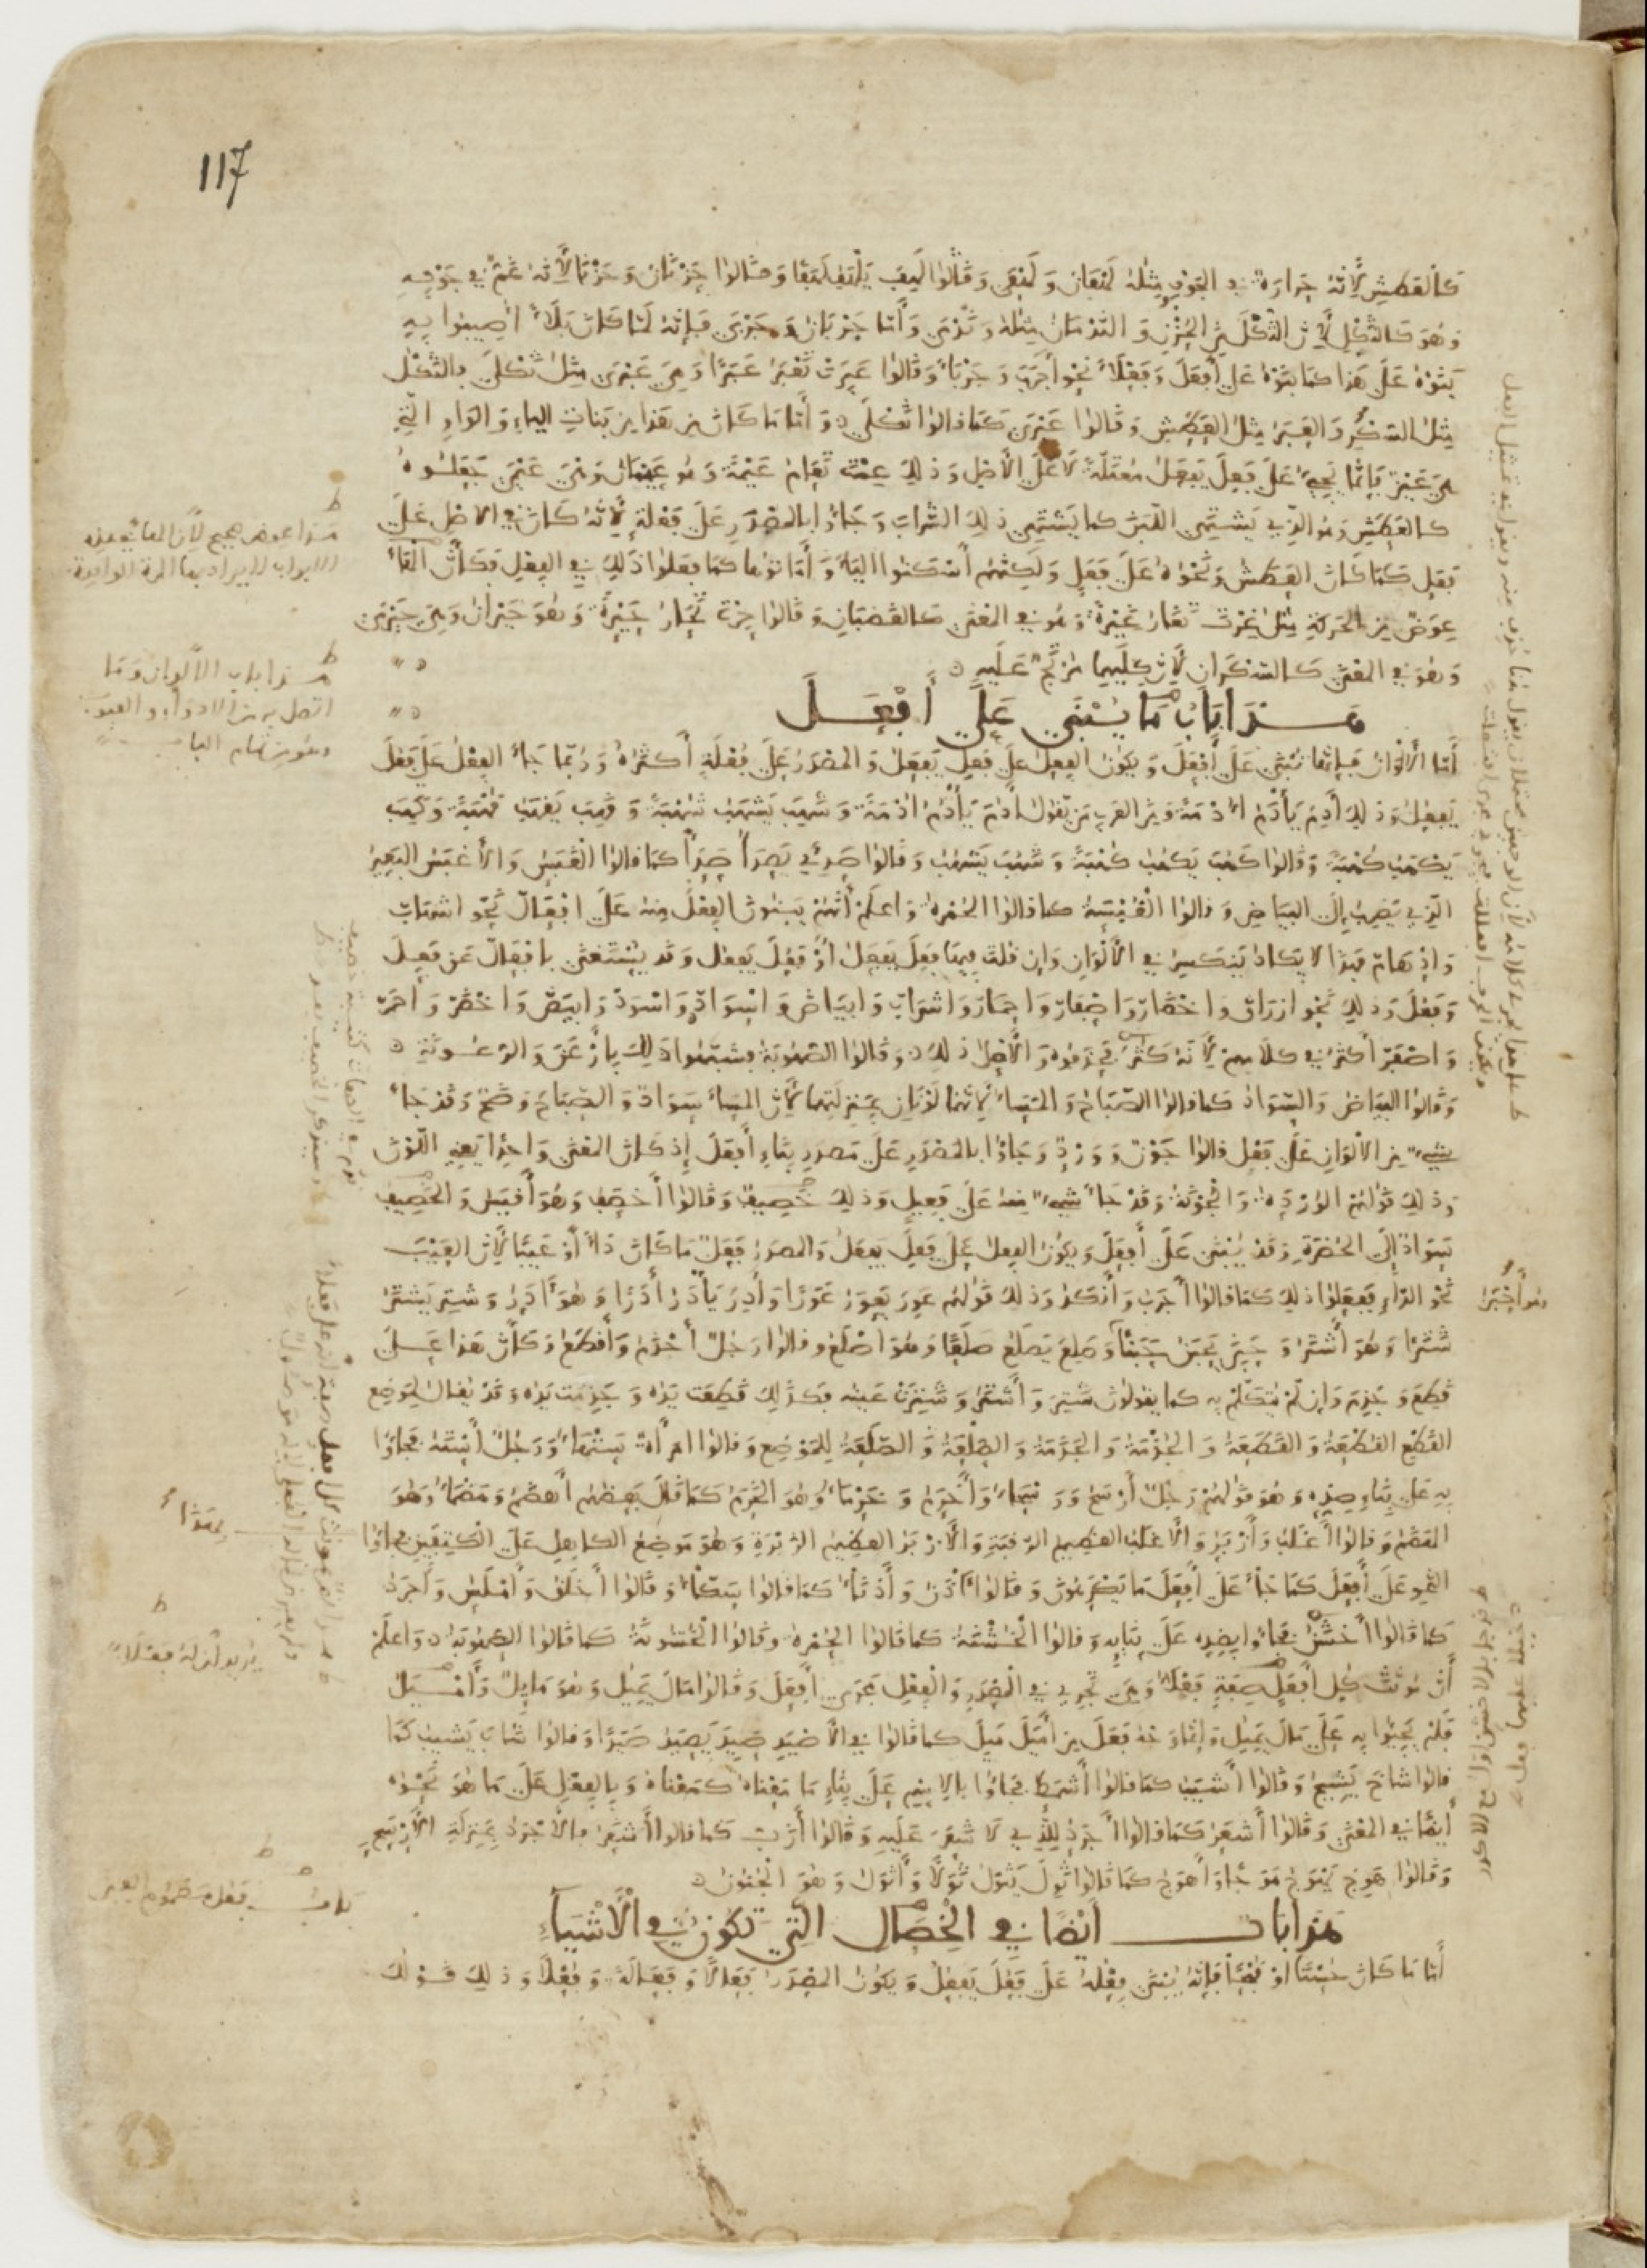 117
كالعطش لأنه حرارة في الجوف مثله لهفان ولهفى وقالوا لهف يلهف لهفا وقالوا حزنان وحزنى لأنه غم في جوفه
وهو كالثكل لأن الثكل من الحزن والندمان مثله وندمى وأما جربان وجربى فإنه لما كان بلاء أصيبوا به
بنوه على هذا كما بنوه على أفعل وفعلاء نحو أجرب وجرباء وقالوا عبرت تعبر عبرا وهي عبرى مثل ثكلى فالثكل
مثل السكر والعبر مثل العطش وقالوا عبرى كما قالوا ثكلى وأما ما كان من هذا من بنات الياء والواو التي
هي عين فإنما تجيء على فعل يفعل معتلة لا على الأصل وذلك عمت تعام عيمة وهو عيمان وهي عيمى جعلوه
كالعطش وهو الذي يشتهي اللبن كما يشتهي ذلك الشراب وجاؤا بالمصدر على فعلة لأنه كان في الأصل على
فعل كما كان العطش ونحوه على فعل ولكنهم أسكنوا الياء وأماتوها كما فعلوا ذلك في الفعل فكأن الهاء
عوض من الحركة مثل غرت تغار غيرة وهو في المعنى كالغضبان وقالوا حرت تحار حيرة وهو حيران وهي حيرى
وهو في المعنى كالسكران لأن كليهما مرتج عليه
هذا باب ما يبنى على أفعل
أما الألوان فإنها تبنى على أفعل ويكون الفعل على فعل يفعل والمصدر على فعلة أكثره وربما جاء الفعل على فعل
يفعل وذلك أدم يأدم أدمة ومن العرب من يقول أدم يأدم أدمة وشهب يشهب شهبة وقهب يقهب قهبة وكهب
يكهب كهبة وقالوا كهب يكهب كهبة وشهب يشهب وقالوا صدئ يصدأ صدأ كما قالوا الغبس والأغبس البعير
الذي يضرب إلى البياض وقالوا الغبسة كما قالوا الحمرة واعلم أنهم يبنون الفعل منه على افعال نحو اشهاب
وادهام فهذا لا يكاد ينكسر في الألوان وإن قلت فيها فعل يفعل أو فعل يفعل وقد يستغنى بافعال عن فعل
وفعل وذلك نحو ازراق واخضار واصفار واحمار واشراب وابياض واسواد واسود وابيض واخضر واحمر
واصفر أكثر في كلامهم لأنه كثر فحذفوه والأصل ذلك وقالوا الصهوبة فشبهوا ذلك بأرعن والرعونة
وقالوا البياض والسواد كما قالوا الصباح والمساء لأنهما لونان بمنزلتهما لأن المساء سواد والصباح وضح وقد جاء
شيء من الألوان على فعل قالوا جون وورد وجاؤا بالمصدر على مصدر بناء أفعل إذ كان المعنى واحدا يعني اللون
وذلك قولهم الوردة والجونة وقد جاء شيء منه على فعيل وذلك خصيف وقالوا أخصف وهو أقيس والخصيف
سواد إلى الخضرة وقد يبنى على أفعل ويكون الفعل على فعل يفعل والمصدر فعل ما كان داء أو عيبا لأن العيب
نحو الداء ففعلوا ذلك كما قالوا أجرب وأنكد وذلك قولهم عور يعور عورا وأدر يأدر أدرا وهو آدر وشتر يشتر
شترا وهو أشتر وحبن يحبن حبنا وصلع يصلع صلعا وهو أصلع وقالوا رجل أجذم وأقطع وكأن هذا على
قطع وجذم وإن لم يتكلم به كما يقولون شتر وأشتر وشترت عينه فكذلك قطعت يده وجذمت يده وقد يقال لموضع
القطع القطعة والقطعة والجذمة والجذمة والصلعة والصلعة للموضع وقالوا امرأة ستهاء ورجل أسته فجاؤا
به على بناء ضده وهو قولهم رجل أرسح ورسحاء وأخرم وخرماء وهو الخرم كما قال بعضهم أهضم وهضماء وهو
الهضم وقالوا أغلب وأزبر والأغلب العظيم الرقبة والأزبر العظيم الزبرة وهو موضع الكاهل على الكتفين فجاؤا
النحو على أفعل كما جاء على أفعل ما يكرهون وقالوا آذن وأذناء كما قالوا سكاء وقالوا أخلق وأملس وأجرد
كما قالوا أخشن فجاؤا بضده على بنائه وقالوا الخشنة كما قالوا الحمرة وقالوا الخشونة كما قالوا الصهوبة واعلم
أن مؤنث كل أفعل صفة فعلاء وهي تجري في المصدر والفعل مجرى أفعل وقالوا مال يميل وهو مائل وأميل
فلم يجيئوا به على مال يميل وإنما وجه فعل من أميل ميل كما قالوا في الأصيد صيد يصيد صيدا وقالوا شاب يشيب كما
قالوا شاخ يشيخ وقالوا أشيب كما قالوا أشمط فجاؤا بالاسم على بناء ما معناه كمعناه وبالفعل على ما هو نحوه
أيضا في المعنى وقالوا أشعر كما قالوا أجرد للذي لا شعر عليه وقالوا أزب كما قالوا أشعر فالأجرد بمنزلة الأرسح
وقالوا هوج يهوج هوجا وأهوج كما قالوا ثول يثول ثولا وأثول وهو الجنون
هذا باب أيضا في الخصال التي تكون في الأشياء
أما ما كان حسنا أو قبحا فإنه يبنى فعله على فعل يفعل ويكون المصدر فعالا وفعالة وفعلا وذلك قولك
هذا باب الألوان وما
اتصل به من الأدواء والعيوب